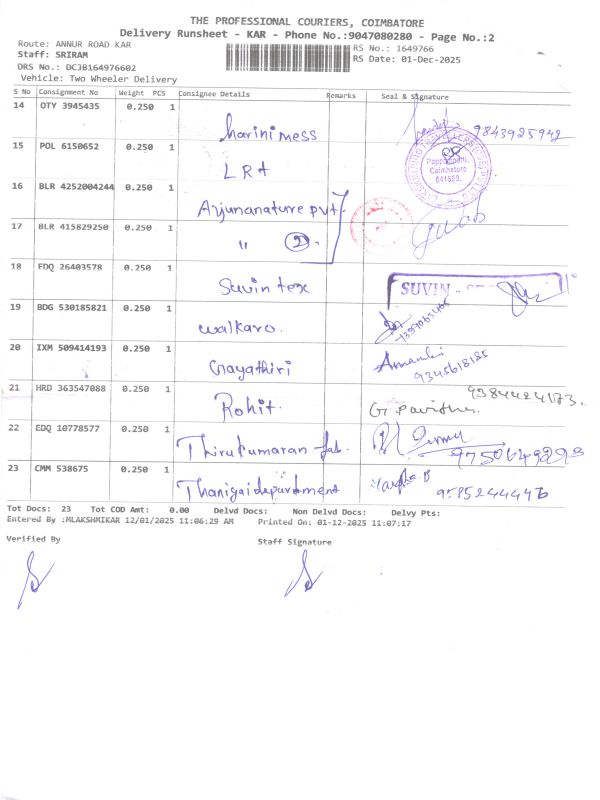 THE PROFESSIONAL COURIERS, COIMBATORE
Delivery Runsheet - KAR - Phone No.:9047080280 - Page No.:2
Route: ANNUR ROAD KAR
RS No.: 1649766
Staff: SRIRAM
RS Date: 01-Dec-2025
DRS No.: DCJB164976602
Vehicle: Two Wheeler Delivery
S No Consignment No Weight PCS Consignee Details Remarks Seal & Signature
14 OTY 3945435 0.250 1 harinimess 9843925942
15 POL 6150652 0.250 1 LRT
Pappampatti, Coimbatore
16 BLR 4252004244 0.250 1 Arjunanature pvt
17 BLR 415829250 0.250 1 " 2
18 EDQ 26403578 0.250 1 Suvin tex SUVIN
19 BDG 530185821 0.250 1 walkaro.
20 IXM 509414193 0.250 1 Gayathiri 9345618125
21 HRD 363547088 0.250 1 Rohit. G. Pavithra. 9384424173.
22 EDQ 10778577 0.250 1 Thirukumaran fab. 9750649293
23 CMM 538675 0.250 1 Thanigaidepartment 9585244476
Tot Docs: 23 Tot COD Amt: 0.00 Delvd Docs: Non Delvd Docs: Delvy Pts:
Entered By :MLAKSHMIKAR 12/01/2025 11:06:29 AM Printed On: 01-12-2025 11:07:17
Verified By Staff Signature